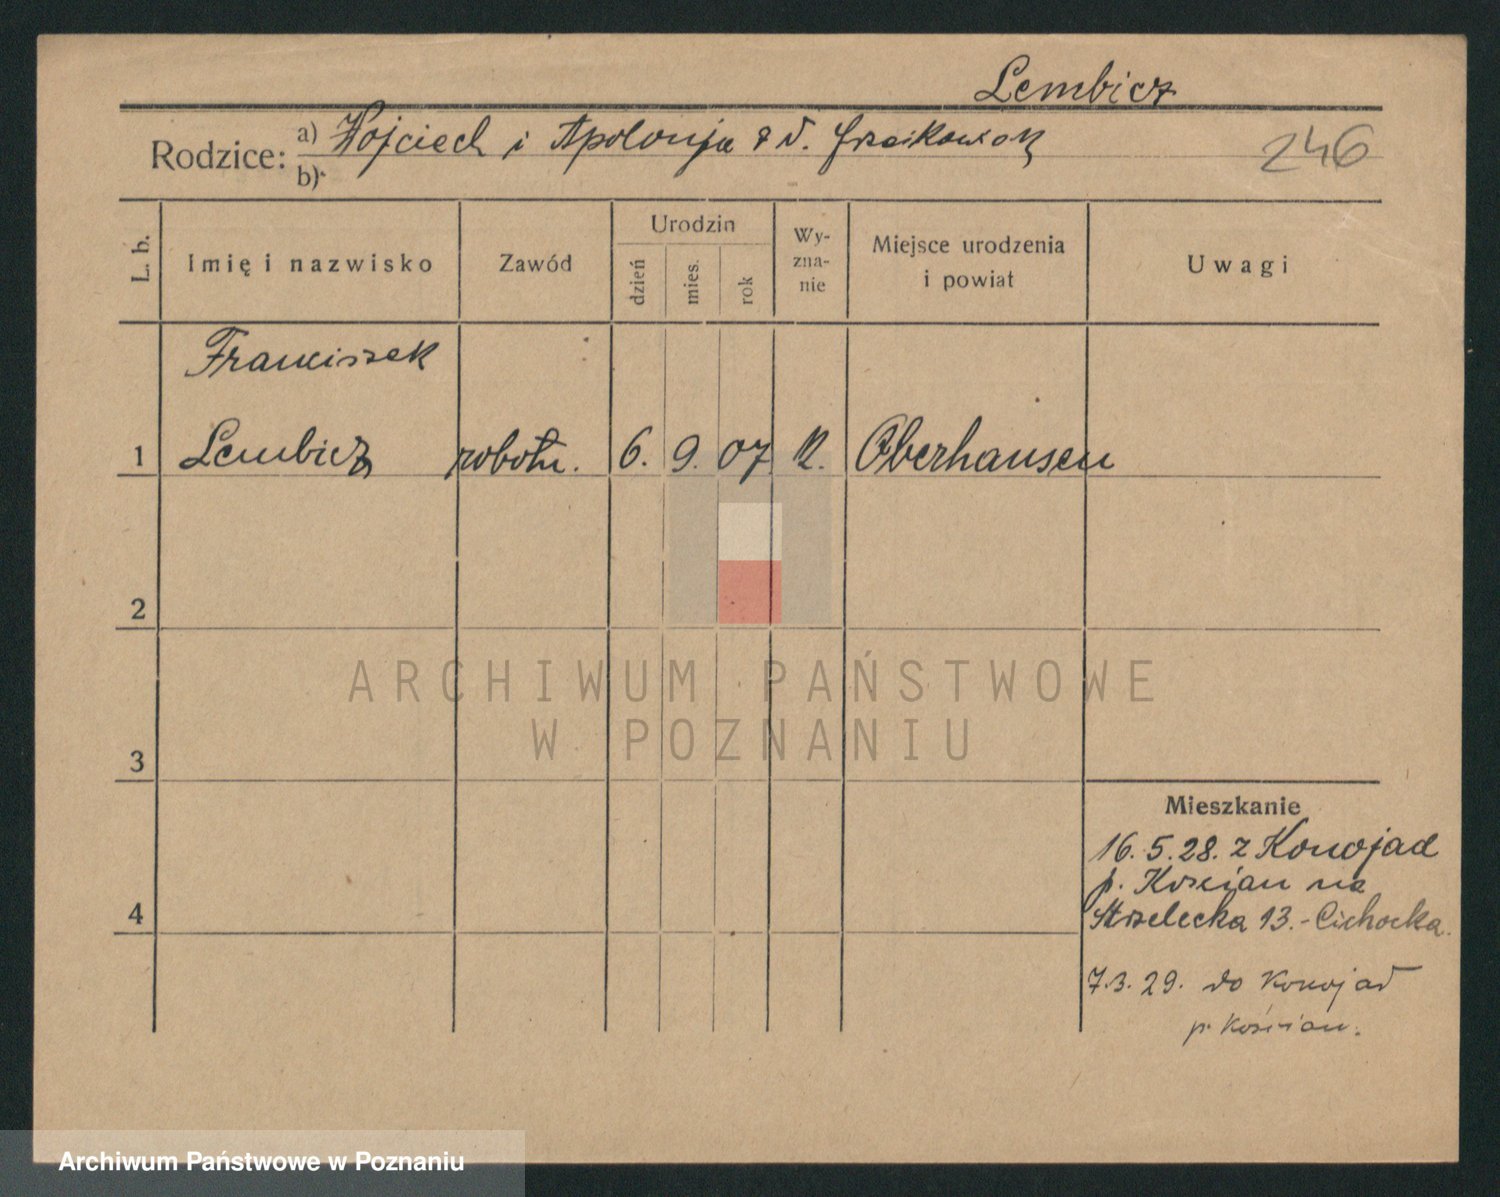 Lembicz
Rodzice: a) Wojciech i Apolonja z d.
b)
246
L. b.
Imię i nazwisko
Zawód
Urodzin
dzień
mies.
rok
Wy-
zna-
nie
Miejsce urodzenia
i powiat
Uwagi
Franciszek
1 Lembicz robotn. 6. 9. 07 k. Oberhausen
2
3
4
Mieszkanie
16. 5. 28. z Konojad
p. Kościan na
Strzelecka 13. - Cichocka.
7.3. 29. do Konojad
p. Kościan.
ARCHIWUM PAŃSTWOWE
W POZNANIU
Archiwum Państwowe w Poznaniu